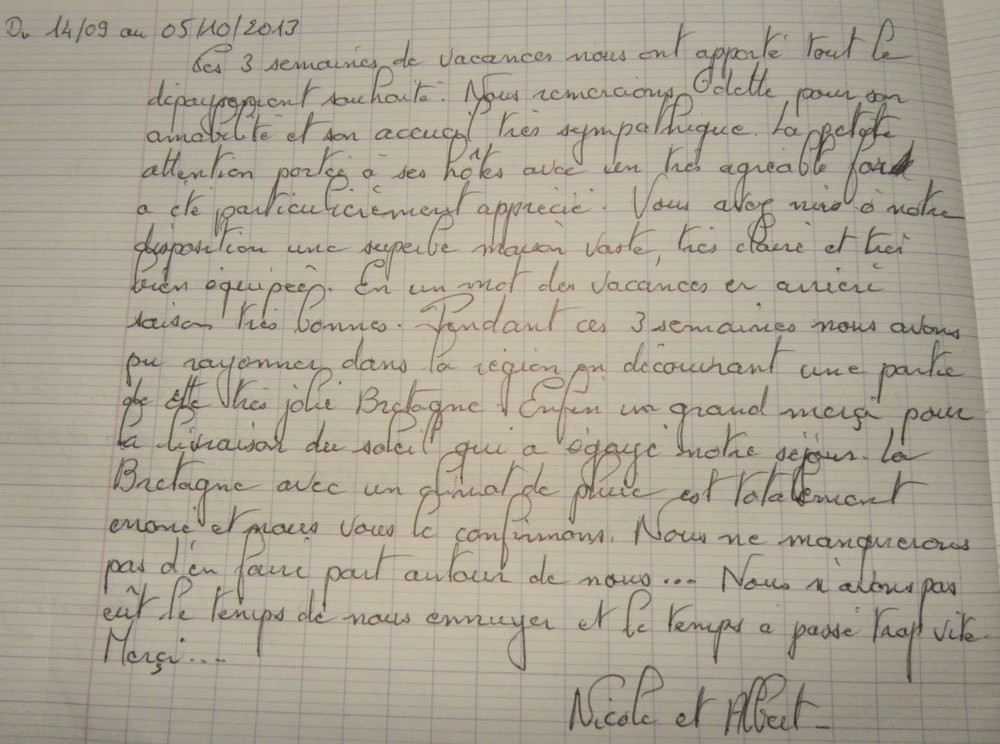 Du 14/09 au 05/10/2013
Ces 3 semaines de vacances nous ont apporté tout le
dépaysement souhaité. Nous remercions Odette pour son
amabilité et son accueil très sympathique. La petite
attention portée à ses hôtes avec un très agréable
a été particulièrement apprécié. Vous avez mis à notre
disposition une superbe maison vaste, très claire et très
bien équipée. En un mot des vacances en arrière
saison très bonnes. Pendant ces 3 semaines nous avons
pu rayonner dans la région en découvrant une partie
de cette très jolie Bretagne. Enfin un grand merçi pour
la livraison du soleil qui a égayé notre séjour. La
Bretagne avec un climat de pluie est totalement
erroné et nous vous le confirmons. Nous ne manquerons
pas d'en faire part autour de nous... Nous n'avons pas
eût le temps de nous ennuyer et le temps a passé trop vite.
Merçi....
Nicole et Albert